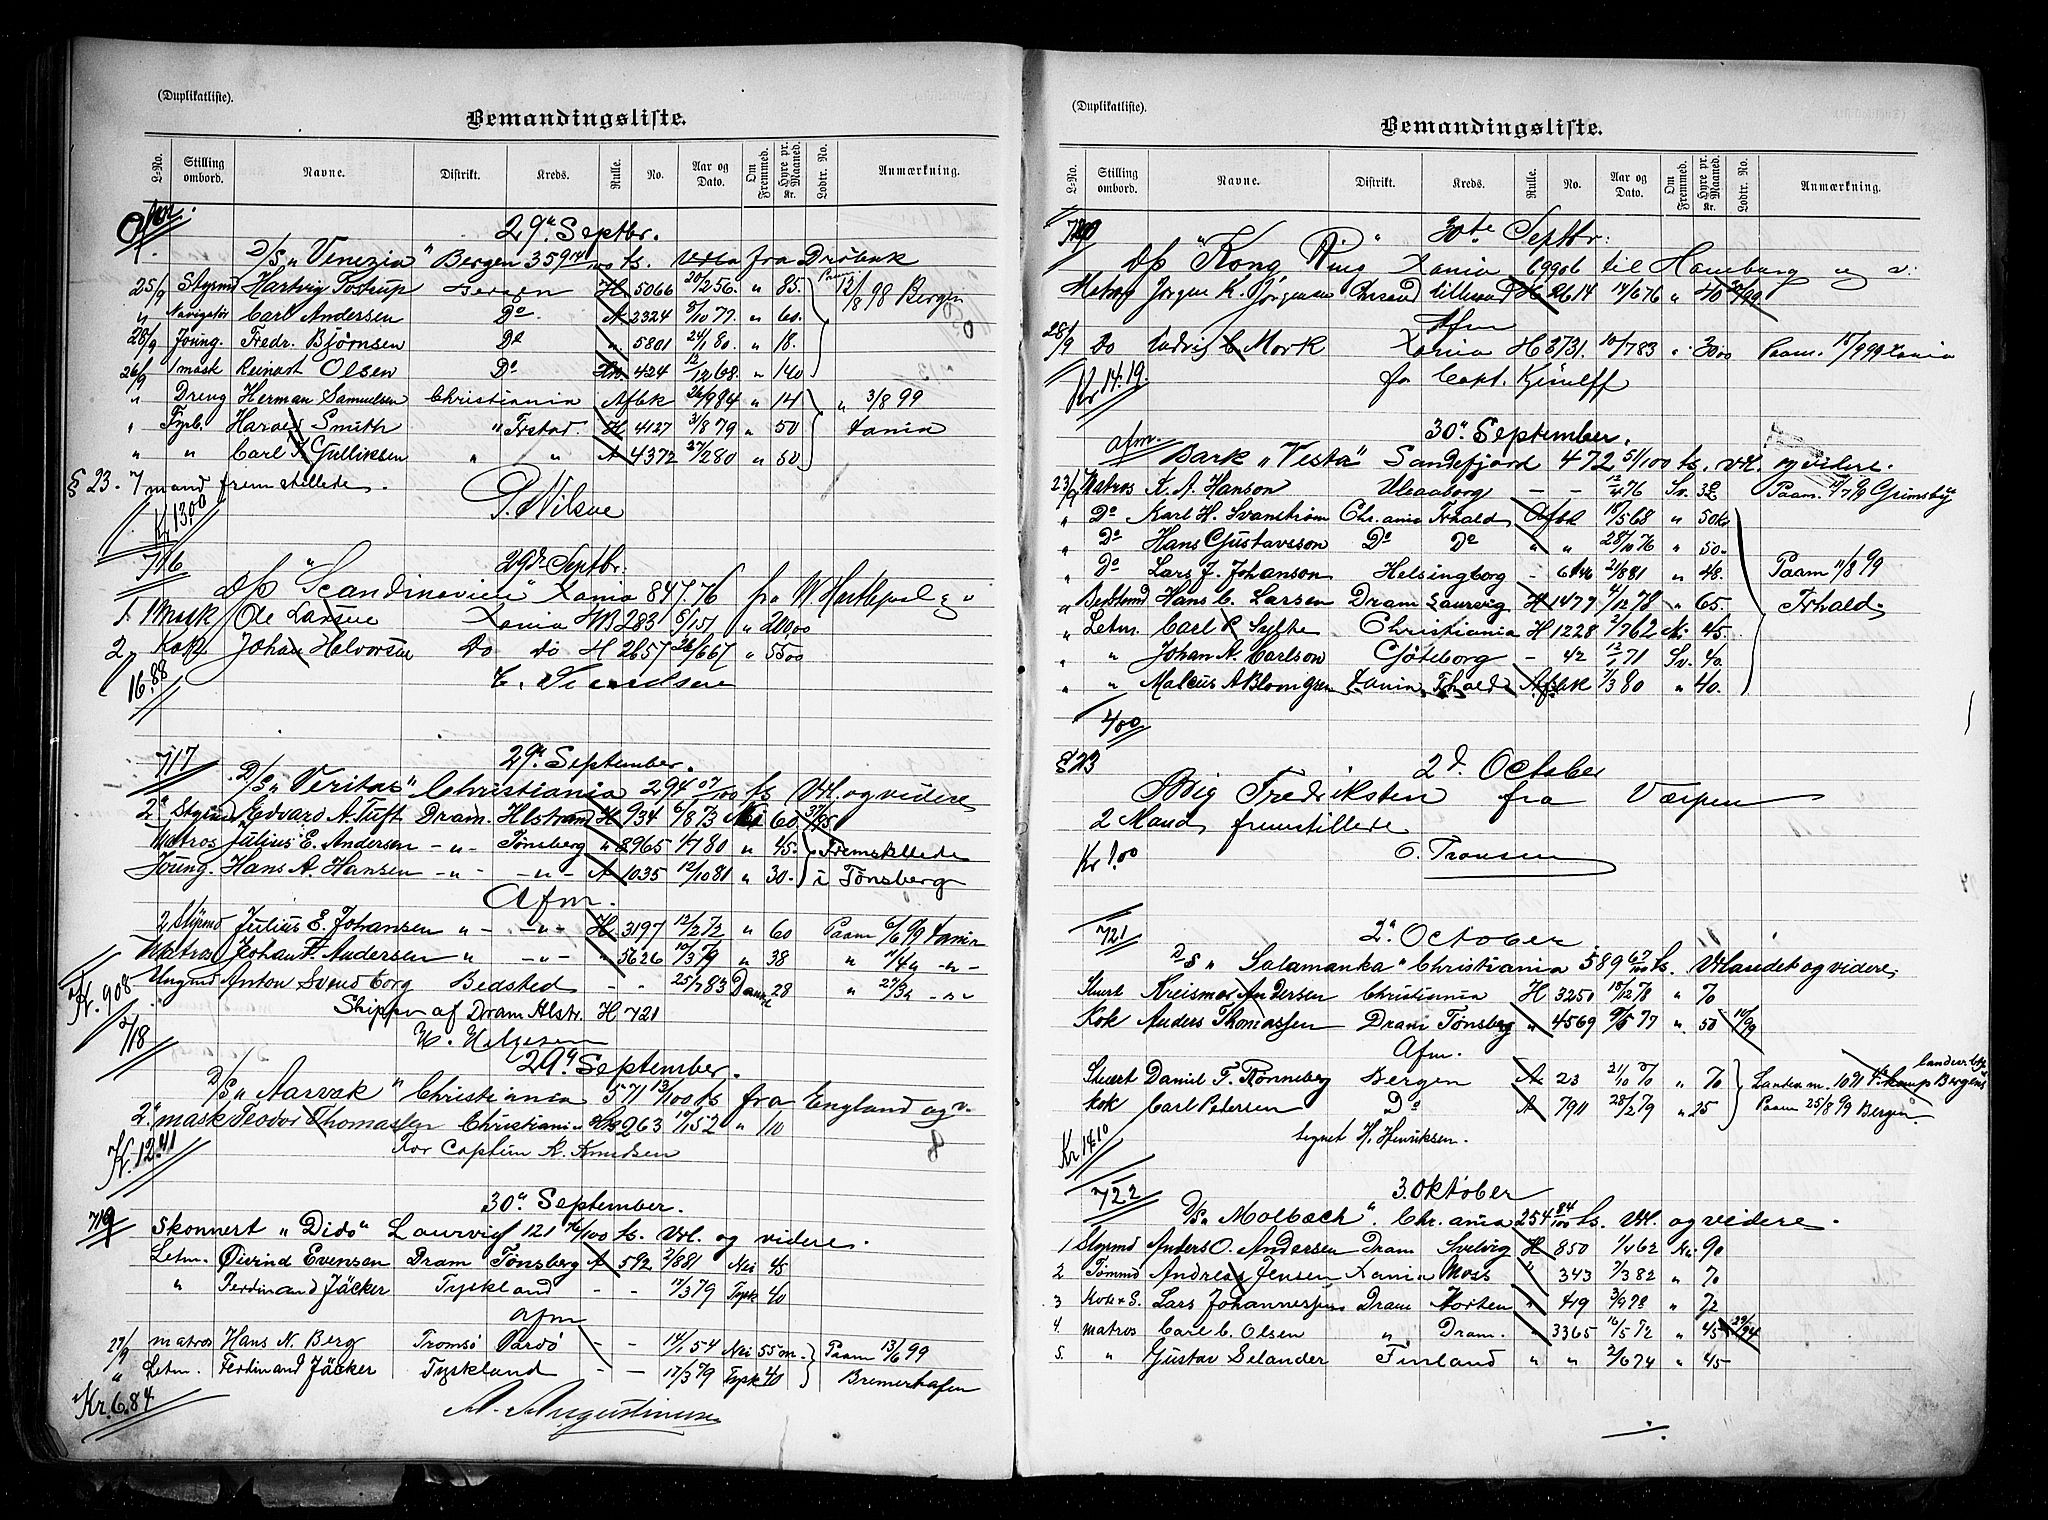 (Duplikatliste).
Bemandingsliste.
L-No. Stilling ombord. Navne. Distrikt. Kreds. Rulle. No. Aar og Dato. Om Fremmed. Hyre pr. Maaned. Kr. Lodtr. No. Anmærkning.
Afm. 29de Septbr.
D/S „Venezia" Bergen 359 14/100 ts. fra Drøbak
25/9 Styrmd Hartvig Tostrup Bergen H 5066 20/2 56. „ 85. Paam 12/8 98 Bergen
„ Navigatør Carl Andersen Do A 2324 5/10 77. „ 60.
28/9 Joung. Fredr. Bjørnsen Do „ 5801 24/1 80. „ 18.
26/9 1 mask Reinart Olsen Do 424 12/12 68. „ 140
„ Dreng Herman Samuelsen Christiania Afbk 26/9 84 „ 14 „ 3/8 99
„ Fyrb. Harald Smith „ Frstad. H 4127 31/8 79 „ 50 Xania
„ „ Carl Gulliksen „ „ A 4372 27/2 80 „ 50
§ 23. 7 mand fremstillede.
Kr 13.00 P. Nilsen
716 29de Septbr.
D/S „Scandinavien" Xania 847.76 fra W Hartlepool & v
1. 1 Mask Ole Larsen Xania MR 283 6/1 51 „ 200 00
2. Kok Johan Halvorsen Do Do H 2657 26/6 67 „ 55 00
16.88
717 29de September.
D/S „Veritas" Christiania 294 07/100 ts Udl. og videre
2n Styrmd Edvard A. Tuft Dram. Hlstrand H 934 6/8 73 Nei 60 27/95
Matros Julius E. Andersen - „ - Tønsberg „ 2965 4/7 80 „ 45. Fremstillede
Joung. Hans A. Hansen - „ - - „ - A 1035 12/10 81 „ 30. i Tønsberg
Afm.
2 Styrmd Julius E. Johansen „ - - „ - H 3197 12/2 72 „ 60 Paam 6/6 99 Xania
Matros Johan F. Andersen „ - „ - „ 5626 10/3 79 „ 38 „ 11/4 99 - „ -
Ungmd Anton Svend Borg Bedsted - - 25/7 83 Dansk 28 „ 27/3 99 - „ -
Kr. 908 Skipper af Dram Hlstr. H 721
718
29de September.
D/S „Aarvak" Christiania 571 13/100 ts fra England og v.
2n mask Teodor Thomassen Christiania 263 19/1 52 „ 110
Kr. 12.41 For Captein K. Knudsen
30te September.
719 Skonnert „Dido" Laurvig 121 76/100 ts. Udl. og videre.
Letm. Øivind Evensen Dram Tønsberg A 592 2/6 81 Nei 45
„ Ferdinand Jäcker Tyskland - - 17/3 79 Tysk 40
Afm
27/9 matros Hans N. Berg Tromsö Vardö - - 14/1 54 Nei 55 m. Paam 13/6 99
„ Letm. Ferdinand Jäcker Tyskland - - 17/3 79 Tysk 40 Bremerhafen
Kr. 6.84 A. Augustinusen
(Duplikatliste).
Bemandingsliste.
L-No. Stilling ombord. Navne. Distrikt. Kreds. Rulle. No. Aar og Dato. Om Fremmed. Hyre pr. Maaned. Kr. Lodtr. No. Anmærkning.
720 30te Septbr:
D/S „Kong Ring" Xania 699 06 til Hamburg og v:
Matros Jørgen K. Jørgensen Chrsand Lillesand H 2614 14/6 76 „ 40
Afm
28/9 Do Ludvig C. Mork Xania H 3731. 10/7 83 „ 30 00 Paam. 15/9 99 Xania
Kr. 14.19. for Capt.
30te September.
Afm. Bark „Vesta" Sandefjord 472 51/100 ts. Udl. og videre.
23/9 Matros K. A. Hanson Uleaborg - - 12/4 76 Sv. 32 Paam. Grimsby
„ Do Karl H. Svanström Chr.ania Frhald Afbk 18/5 68 „ 50
„ Do Hans Gustavsson Do Do „ „ 28/10 76 „ 50.
„ Do Lars J. Johanson Helsingborg - 6146 21/8 81 „ 48. Paam 11/8 99
„ Bestmd Hans C. Larsen Dram Laurvig H 1477 4/12 78 „ 65. Frhald.
„ Letm. Carl Sylte Christiania H 1228 2/7 62 N: 45.
„ „ Johan A. Carlson Göteborg - 42 12/1 71 Sv. 40.
„ „ Malcus A Blomgren Xania Frhald Afbk 7/3 80 „ 40.
4.00
§ 23 2d. October
Brig Fredriksten fra
2 Mand fremstillede
Kr 1.00
721 2n October
D/S „Salamanka" Christiania 589 67/100 ts. Udlandet og videre.
Stuert Andersen Christiania H 3250 18/12 78 „ 70
Kok Anders Thomassen Dram Tønsberg „ 4569 9/6 77 „ 50 10/99
Afm.
Stuert Daniel F. Rönneberg Bergen A 23 21/10 70 „ 70
Kok Carl Petersen Do A 7911 28/2 79 „ 25 Paam 25/8 99 Bergen
Kr 14.10 tegnet H. Henriksen.
722 3. Oktober
D/S „Molbach". Chr.ania 254 84/100 ts. Udl. og videre.
1 Styrmd Anders O. Andersen Dram Svelvig H 850 1/4 62 Nei 90
2 Tömmd Andreas Jensen Xania Moss „ 343 7/3 82 „ 70
3 Kok & S. Lars Johannessen Dram Horten „ 419 3/9 72 „ 72
4. matros Carl C. Olsen „ Dram. „ 3365 16/5 72 „ 45 29/94
5. „ Gustav Selander Finland „ „ 2/6 74 „ 45